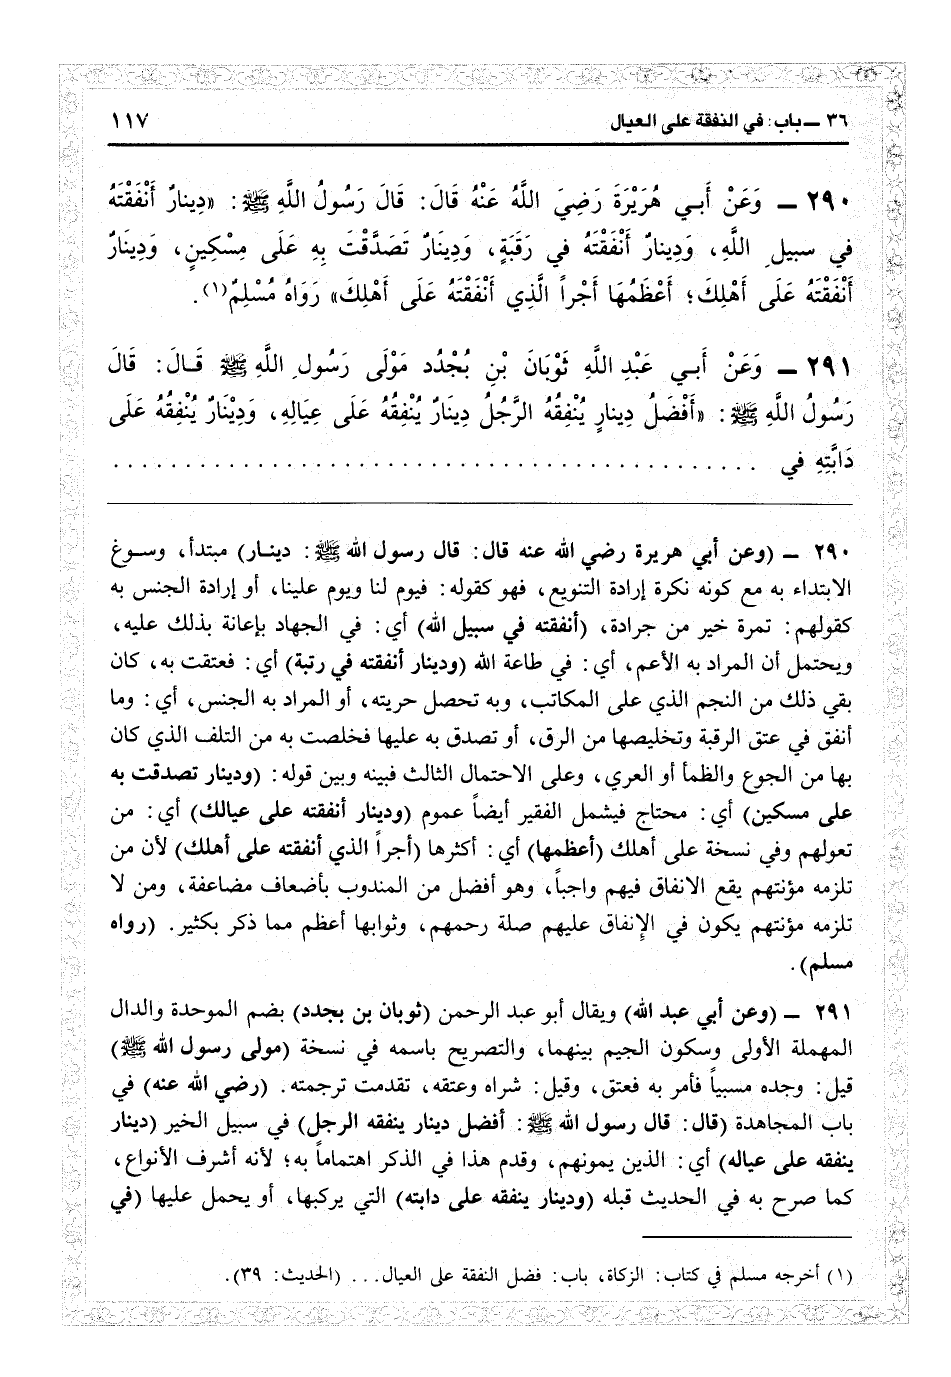 ٣٦ ـ باب: في النفقة على العيال ١١٧
٢٩٠ ـ وَعَنْ أَبـي هُرَيْرَةَ رَضِيَ اللَّهُ عَنْهُ قَالَ: قَالَ رَسُولُ اللَّهِ ﷺ: «دِينارٌ أَنْفَقْتَهُ
في سبيلِ اللَّهِ، وَدِينارٌ أَنْفَقْتَهُ في رَقَبَةٍ، وَدِينَارٌ تَصَدَّقْتَ بِهِ عَلَى مِسْكِينٍ، وَدِينَارٌ
أَنْفَقْتَهُ عَلَى أَهْلِكَ؛ أَعْظَمُهَا أَجْراً الَّذِي أَنْفَقْتَهُ عَلَى أَهْلِكَ» رَوَاهُ مُسْلِمٌ(١).
٢٩١ ـ وَعَنْ أَبـي عَبْدِ اللَّهِ ثَوْبَانَ بْنِ بُجْدُد مَوْلَى رَسُولِ اللَّهِ ﷺ قَـالَ: قَالَ
رَسُولُ اللَّهِ ﷺ: «أَفْضَلُ دِينارٍ يُنْفِقُهُ الرَّجُلُ دِينَارٌ يُنْفِقُهُ عَلَى عِيَالِهِ، وَدِيْنَارٌ يُنْفِقُهُ عَلَى
دَابَّتِهِ في . . . . . . . . . . . . . . . . . . . . . . . . . . . . . . . . . . . . . . . . . . . . . .
٢٩٠ ـ (وعن أبي هريرة رضي الله عنه قال: قال رسول الله ﷺ: دينـار) مبتدأ، وسـوغ
الابتداء به مع كونه نكرة إرادة التنويع، فهو كقوله: فيوم لنا ويوم علينا، أو إرادة الجنس به
كقولهم: تمرة خير من جرادة، (أنفقته في سبيل الله) أي: في الجهاد بإعانة بذلك عليه،
ويحتمل أن المراد به الأعم، أي: في طاعة الله (ودينار أنفقته في رتبة) أي: فعتقت به، كان
بقي ذلك من النجم الذي على المكاتب، وبه تحصل حريته، أو المراد به الجنس، أي: وما
أنفق في عتق الرقبة وتخليصها من الرق، أو تصدق به عليها فخلصت به من التلف الذي كان
بها من الجوع والظمأ أو العري، وعلى الاحتمال الثالث فبينه وبين قوله: (ودينار تصدقت به
على مسكين) أي: محتاج فيشمل الفقير أيضاً عموم (ودينار أنفقته على عيالك) أي: من
تعولهم وفي نسخة على أهلك (أعظمها) أي: أكثرها (أجراً الذي أنفقته على أهلك) لأن من
تلزمه مؤنتهم يقع الانفاق فيهم واجباً، وهو أفضل من المندوب بأضعاف مضاعفة، ومن لا
تلزمه مؤنتهم يكون في الإِنفاق عليهم صلة رحمهم، وثوابها أعظم مما ذكر بكثير. (رواه
مسلم).
٢٩١ ـ (وعن أبي عبد الله) ويقال أبو عبد الرحمن (ثوبان بن بجدد) بضم الموحدة والدال
المهملة الأولى وسكون الجيم بينهما، والتصريح باسمه في نسخة (مولى رسول الله ﷺ)
قيل: وجده مسبياً فأمر به فعتق، وقيل: شراه وعتقه، تقدمت ترجمته. (رضي الله عنه) في
باب المجاهدة (قال: قال رسول الله ﷺ: أفضل دينار ينفقه الرجل) في سبيل الخير (دينار
ينفقه على عياله) أي: الذين يمونهم، وقدم هذا في الذكر اهتماماً به؛ لأنه أشرف الأنواع،
كما صرح به في الحديث قبله (ودينار ينفقه على دابته) التي يركبها، أو يحمل عليها (في
(١) أخرجه مسلم في كتاب: الزكاة، باب: فضل النفقة على العيال... (الحديث: ٣٩).